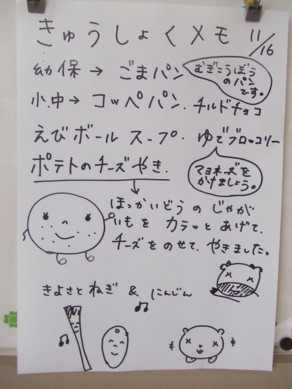 きゅうしょくメモ 11/16
幼保 → ごまパン
むぎこうぼう
のパン
です。
小.中 → コッペパン. チルドチョコ
えびボール スープ. ゆでブロッコリー
ポテトのチーズやき.
マヨネーズを
かけましょう。
ほっかいどうの じゃが
いもを カラッと あげて、
チーズを のせて、やきました。
きよさと ねぎ & にんじん